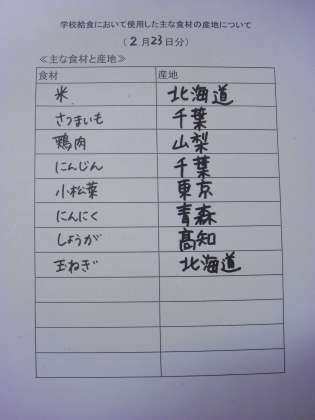 学校給食において使用した主な食材の産地について
(2月23日分)
≪主な食材と産地≫
食材 産地
米 北海道
さつまいも 千葉
鴨肉 山梨
にんじん 千葉
小松菜 東京
にんにく 青森
しょうが 高知
玉ねぎ 北海道